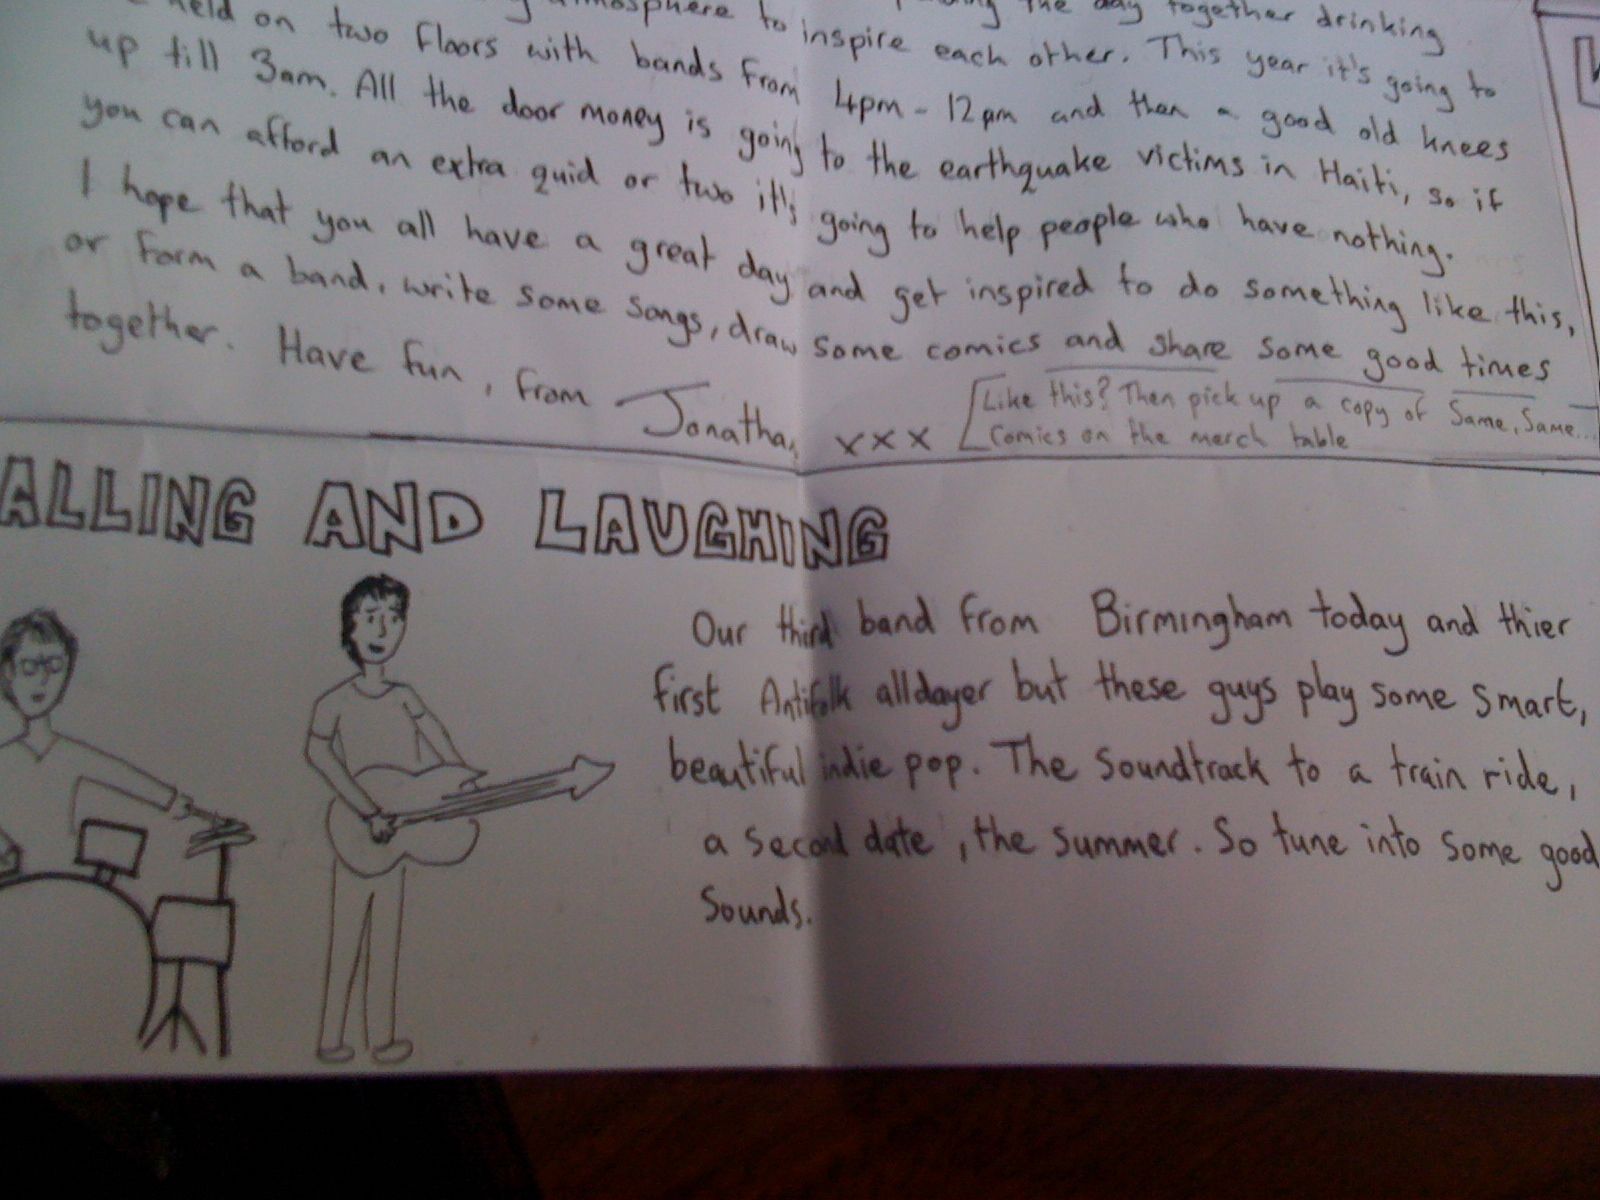 atmosphere to inspire each other. This year it's going to
held on two floors with bands from 4pm - 12pm and then a good old knees
up till 3am. All the door money is going to the earthquake victims in Haiti, so if
you can afford an extra quid or two it's going to help people who have nothing.
I hope that you all have a great day and get inspired to do something like this,
or form a band, write some songs, draw some comics and share some good times
together. Have fun, from Jonathan xxx
Like this? Then pick up a copy of Same, Same...
Comics on the merch table
ALLING AND LAUGHING
Our third band from Birmingham today and thier
first Antifolk alldayer but these guys play some smart,
beautiful indie pop. The soundtrack to a train ride,
a second date, the summer. So tune into some good
sounds.